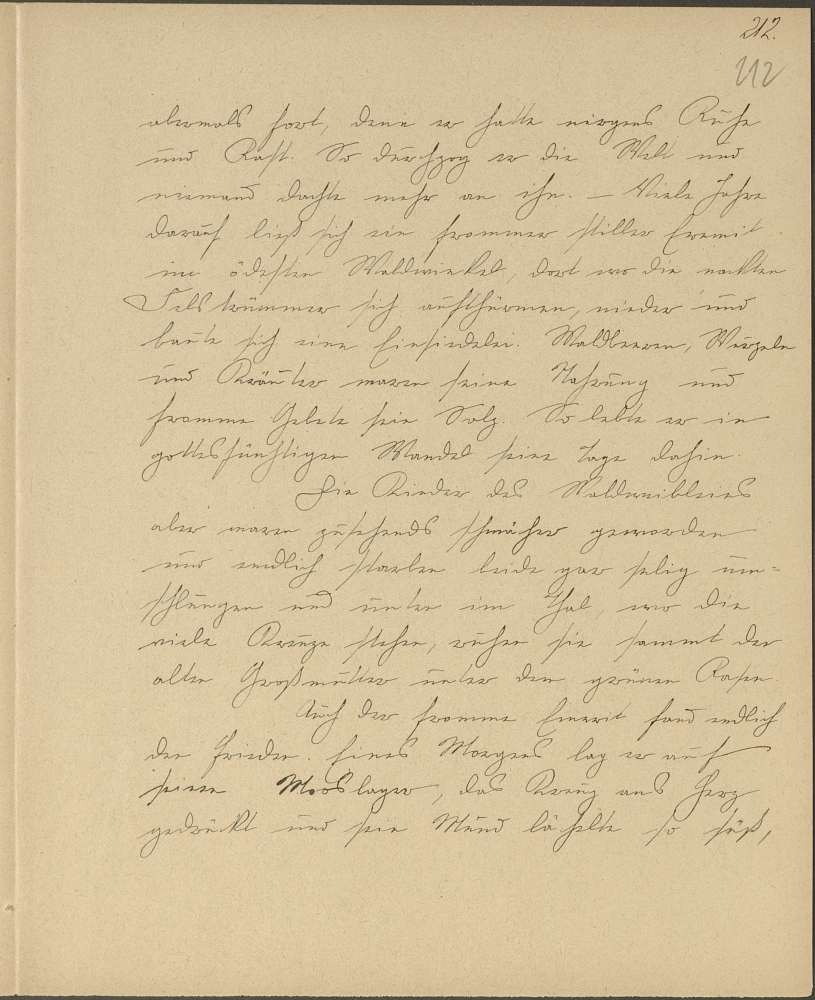 212.
212
abermals fort, denn er hatte nirgens Ruhe
und Rast. So durchzog er die Welt und
niemand dachte mehr an ihn. – Viele Jahre
darauf ließ sich ein frommer stiller Eremit
im ödesten Waldwinkel, dort wo die nackten
Felstrümmer sich aufthürmen, nieder und
baute sich eine Einsiedelei. Waldbeeren, Wurzeln
und Kräuter waren seine Nahrung und
fromme Gebete sein Solz. So lebte er in
gottesfürchtigen Wandel seine Tage dahin.
Die Kinder des Waldweibleins
aber waren zusehends schwächer geworden
und endlich starben beide gar selig um=
schlungen und unten im Thal, wo die
viele Kreuze stehen, ruhen sie sammt der
alten Großmutter unter dem grünen Rasen.
Auch der fromme Emerit fand endlich
den Frieden. Eines Morgens lag er auf
seinem Mooslager, das Kreuz ans Herz
gedrückt und sein Mund lächelte so süß,